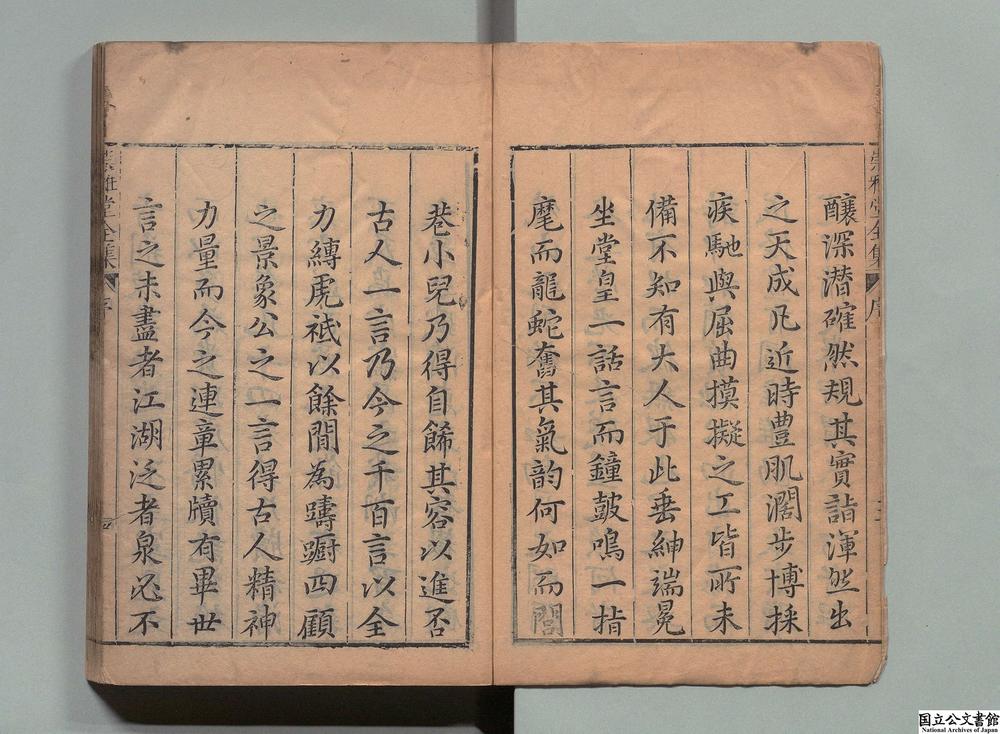 釀深潜確然規其實詣渾然出
之天成凡近時豊肌濶步博採
疾馳與屈曲摸擬之工皆所未
備不知有大人于此垂紳端冕
坐堂皇一話言而鐘鼓鳴一指
麾而龍蛇奮其氣韵何如而閭
巷小兒乃得自餙其容以進否
古人一言乃今之千百言以全
力縳虎祇以餘閒為躊躕四顧
之景象公之一言得古人精神
力量而今之連章累牘有畢世
言之未盡者江湖泛者泉必不
崇雅堂全集
序
崇雅堂全集
序
国立公文書館
National Archives of Japan